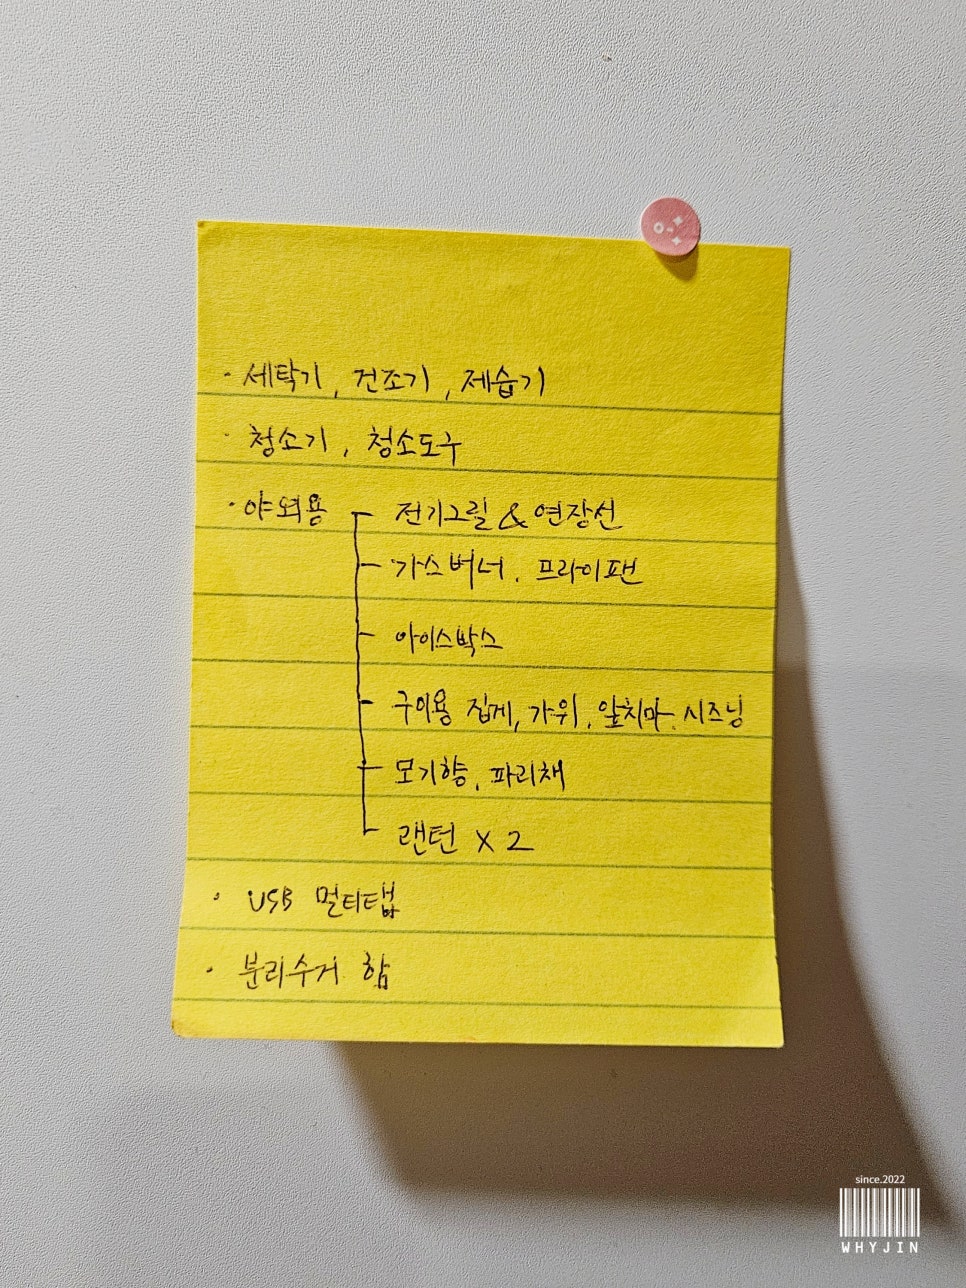 · 세탁기, 건조기, 제습기
· 청소기, 청소도구
· 야외용 전기그릴 & 연장선
가스버너, 프라이팬
아이스박스
구이용 집게, 가위, 앞치마, 시즈닝
모기향, 파리채
랜턴 X 2
· USB 멀티탭
· 분리수거 함
since.2022
WHYJIN